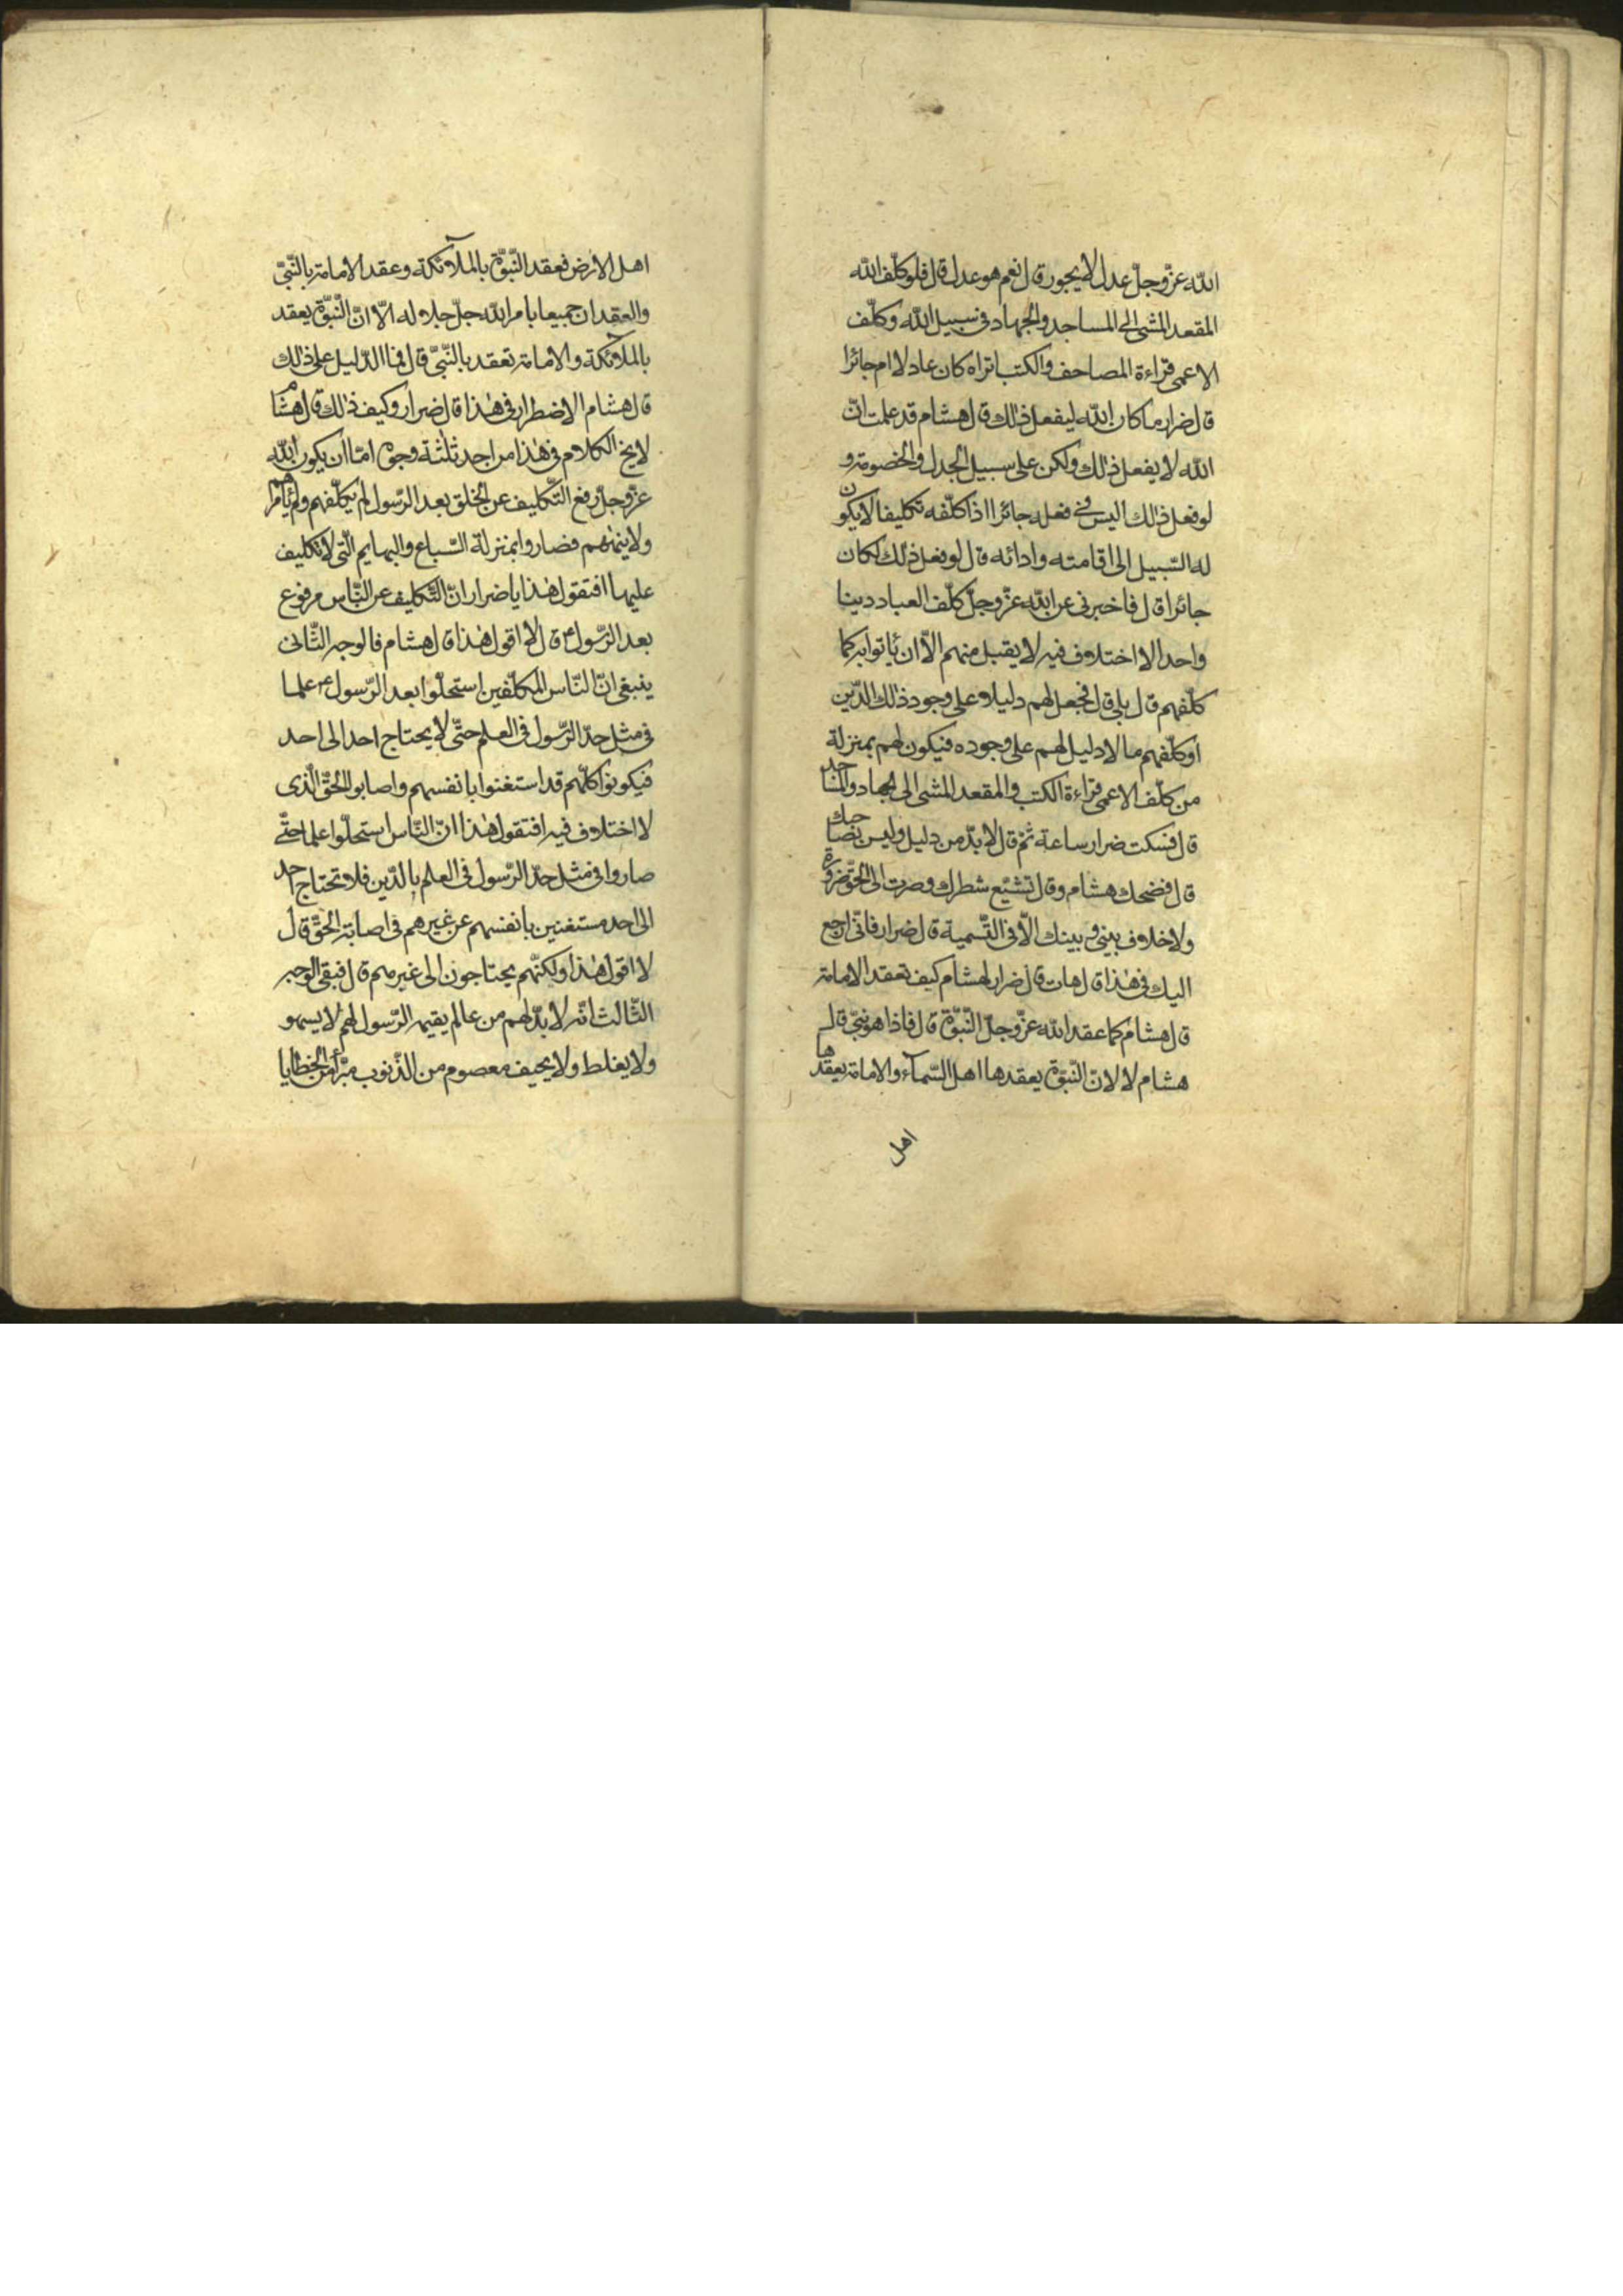 الله عزّ وجلّ عدل لا يجور قال نعم هو عدل قال فلو كلّف الله
المقعد المشى الى المساجد والجهاد فى سبيل الله وكلّف
الاعمى قراءة المصاحف والكتب اتراه كان عادلا ام جائرا
قال ضرار ما كان الله ليفعل ذلك قال هشام قد علمت انّ
الله لا يفعل ذلك ولكن على سبيل الجدل والخصومة و
لو فعل ذلك اليس فى فعله جائرا اذا كلّفه تكليفا لا يكون
له السّبيل الى اقامته وادائه قال لو فعل ذلك لكان
جائرا قال فاخبرنى عن الله عزّ وجلّ كلّف العباد دينا
واحدا لا اختلاف فيه لا يقبل منهم الّا ان يأتوا به كما
كلّفهم قال بلى قال فجعل لهم دليلا على وجود ذلك الدّين
او كلّفهم ما لا دليل لهم على وجوده فيكون لهم بمنزلة
من كلّف الاعمى قراءة الكتب والمقعد المشى الى الجهاد والمساجد
قال فسكت ضرار ساعة ثمّ قال لا بدّ من دليل وليس بصاحبك
قال فضحك هشام وقال تشيّع شطرك وصرت الى الحقّ ضرورة
ولا خلاف بينى و بينك الّا فى التّسمية قال ضرار فانّى ارجع
اليك فى هذا قال هات قال ضرار لهشام كيف تعقد الامامة
قال هشام كما عقد الله عزّ وجلّ النّبوّة قال فاذا هو نبىّ قال
هشام لا لانّ النّبوّة يعقدها اهل السّمآء والامامة يعقدها
اهل
اهل الارض فعقد النّبوّة بالملآئكة وعقد الامامة بالنّبىّ
والعقدان جميعا بامر الله جلّ جلاله الّا انّ النّبوّة يعقد
بالملآئكة والامامة تعقد بالنّبىّ قال فما الدّليل على ذلك
قال هشام الاضطرار فى هذا قال ضرار وكيف ذلك قال هشام
لا يخ الكلام فى هذا من احد ثلثة وجوه امّا ان يكون الله
عزّ وجلّ رفع التّكليف عن الخلق بعد الرّسول لم يكلّفهم ولم يأمرهم
ولا ينههم فصاروا بمنزلة السّباع والبهايم الّتى لا تكليف
عليها افتقول هذا يا ضرار انّ التّكليف عن النّاس مرفوع
بعد الرّسول ص قال لا اقول هذا قال هشام فالوجه الثّانى
ينبغى انّ النّاس المكلّفين استحلّوا بعد الرّسول ص علما
فى مثل حدّ الرّسول فى العلم حتّى لا يحتاج احد الى احد
فيكونوا كلّهم قد استغنوا بانفسهم واصابوا الحقّ الّذى
لا اختلاف فيه افتقول هذا انّ النّاس استحلّوا علما حتّى
صاروا فى مثل حدّ الرّسول فى العلم بالدّين فلا تحتاج احد
الى احد مستغنين بانفسهم عن غيرهم فى اصابة الحقّ قال
لا اقول هذا ولكنّهم يحتاجون الى غيرهم قال فبقى الوجه
الثّالث انّه لا بدّ لهم من عالم يقيمه الرّسول لهم لا يسهو
ولا يغلط ولا يحيف معصوم من الذّنوب مبرّأ من الخطايا